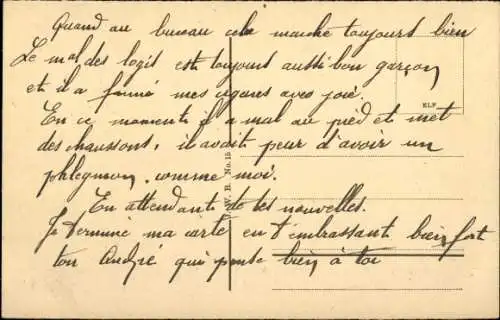 Quand au bureau cela marche toujours bien
Le mal des logis est toujours aussi bon garçon
et il a fumé mes cigares avec joie.
En ce moment il a mal au pied et met
des chaussons, il avait peur d'avoir un
phlegmon, comme moi.
En attendant de tes nouvelles.
Je termine ma carte en t'embrassant bien fort
ton André qui pense bien à toi
KLF
W. B. No. 15